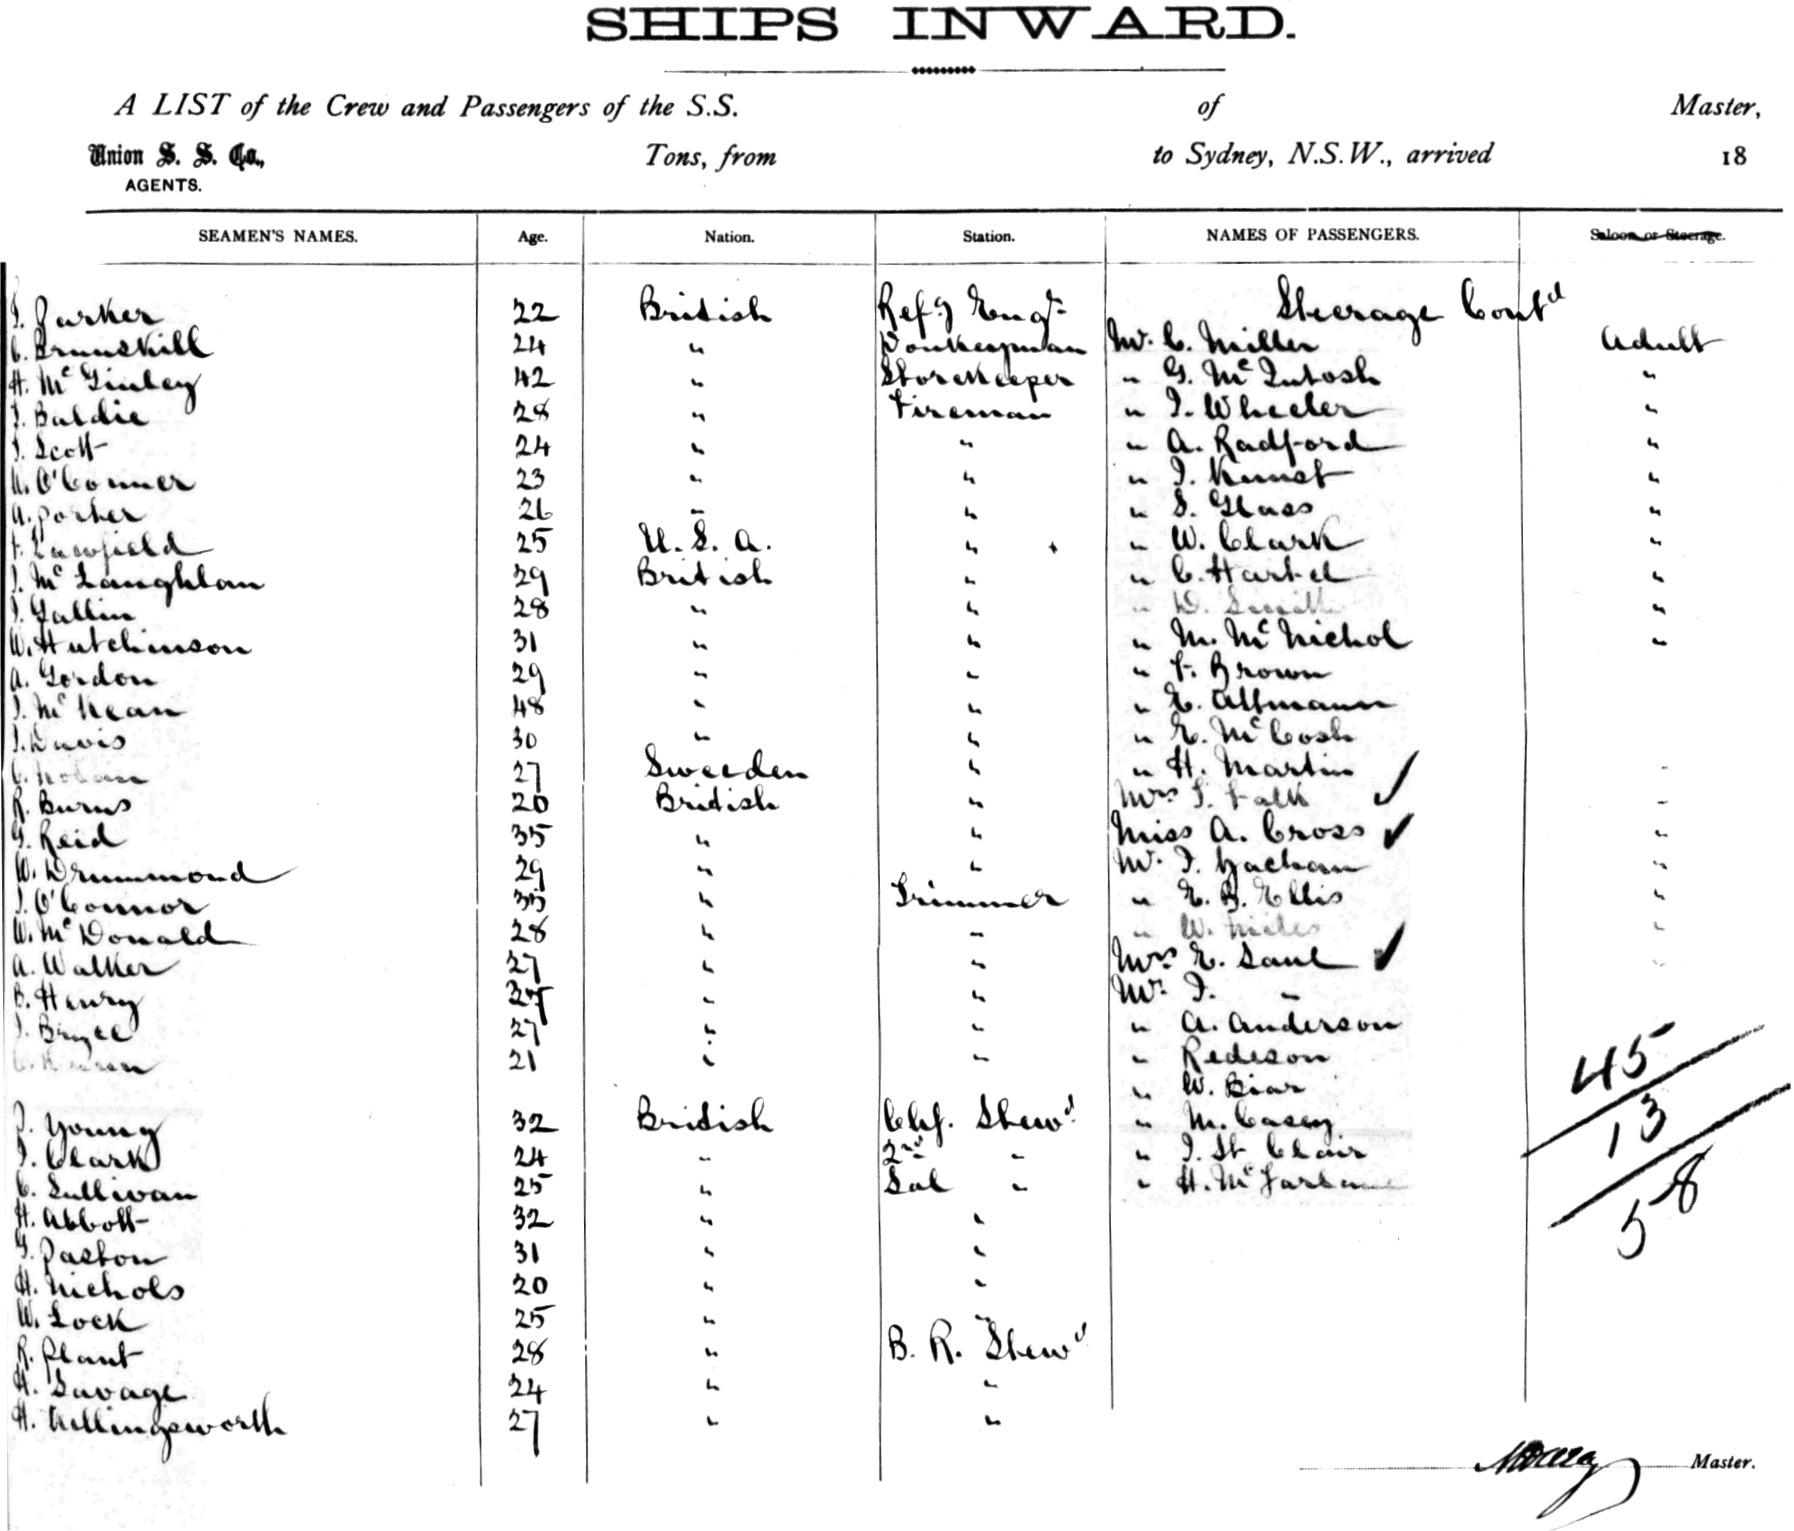 SHIPS INWARD.
A LIST of the Crew and Passengers of the S.S. of Master,
Union S. S. Co., Tons, from to Sydney, N.S.W., arrived 18
AGENTS.
SEAMEN'S NAMES. Age. Nation. Station. NAMES OF PASSENGERS. Saloon or Steerage.
Steerage Contd
Parker 22 British Refg Engr
Brunskill 24 " Donkeyman Mr. C. Miller Adult
H. McGinley 42 " Storekeeper " G. McIntosh "
J. Baldie 28 " Fireman " J. Wheeler "
J. Scott 24 " " " A. Radford "
O'Conner 23 " " " J. Kunst "
A. Porter 26 " " " S. Glass "
25 U.S.A. " " W. Clark "
J. McLaughlan 29 British " " C. Hartel "
J. Gallin 28 " " " D. Smith "
W. Hutchinson 31 " " " M. McNichol "
A. Gordon 29 " " " F. Brown
J. McKean 48 " " " E. Altmann
J. Davis 30 " " " E. McCosh
27 Sweeden " " H. Martin "
R. Burns 20 British " Mrs Falk "
G. Reid 35 " " Miss A. Cross "
W. Drummond 29 " " Mr. J. "
J. O'Connor 35 " Trimmer " E. B. Ellis "
W. McDonald 28 " " " W. "
A. Walker 27 " " Mrs E. Saul "
B. Henry 27 " " Mr. J. "
J. Bryce 27 " " " A. Anderson
21 " " " Redeson
" W. Biar
45
J. Young 32 British Chf. Stewd " M. Casey
13
J. Clark 24 " 2nd " " J. St Clair
C. Sullivan 25 " Sal " " H. McFarlane
58
H. Abbott 32 " "
G. Paston 31 " "
H. Nichols 20 " "
W. Lock 25 " "
R. Plant 28 " B. R. Stewd
H. Savage 24 " "
H. Killingsworth 27 " "
Master.